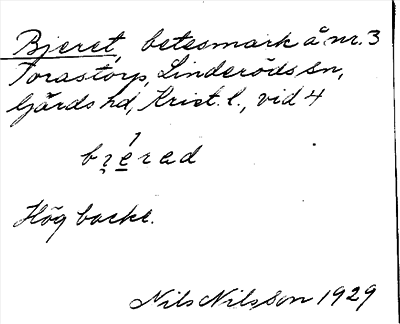 Bjeret, betesmark å nr. 3
Torastorp, Linderöds sn,
Gärds hd, Krist. l., vid 4
bꝛe̲rad
Hög backe.
Nils Nilsson 1929